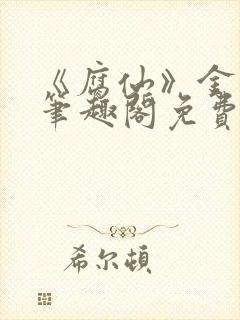 《腐仙》全
笔趣阁免费
希尔顿